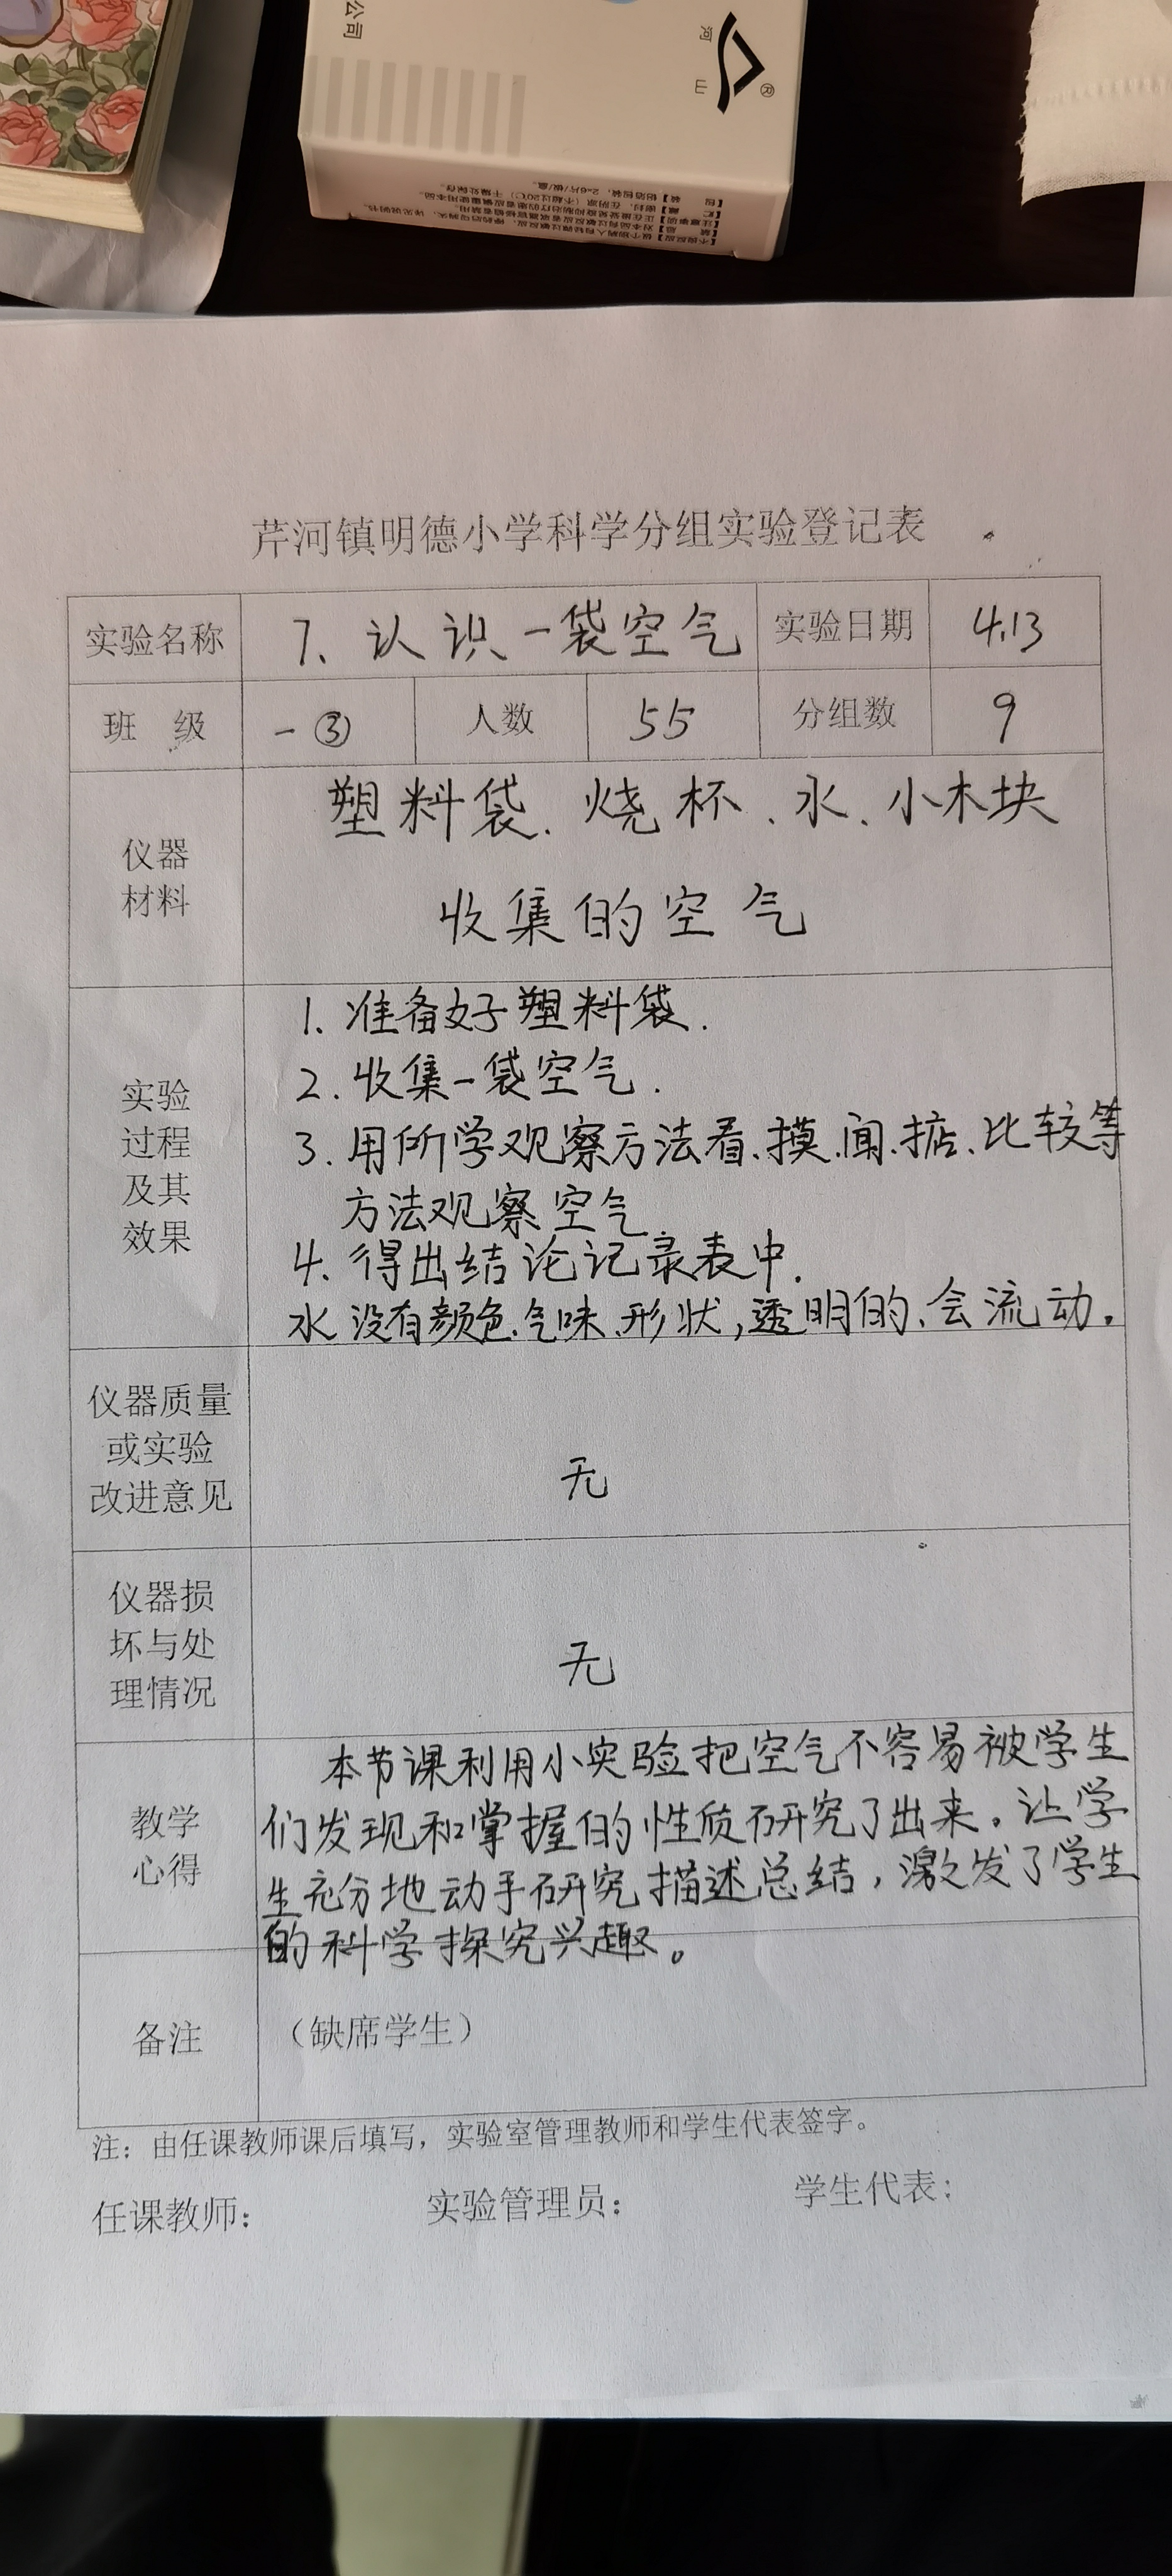 公司
河山
®
芹河镇明德小学科学分组实验登记表
实验名称 7、认识一袋空气 实验日期 4.13
班 级 一③ 人数 55 分组数 9
仪器
材料
塑料袋、烧杯、水、小木块
收集的空气
实验
过程
及其
效果
1. 准备好塑料袋.
2. 收集一袋空气.
3. 用所学观察方法看、摸、闻、掂、比较等
方法观察空气
4. 得出结论记录表中.
水没有颜色、气味、形状,透明的、会流动。
仪器质量
或实验
改进意见
无
仪器损
坏与处
理情况
无
教学
心得
本节课利用小实验把空气不容易被学生
们发现和掌握的性质研究了出来。让学
生充分地动手研究描述总结,激发了学生
的科学探究兴趣。
备注 (缺席学生)
注:由任课教师课后填写,实验室管理教师和学生代表签字。
任课教师: 实验管理员: 学生代表: